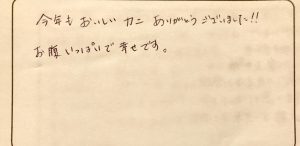 今年も おいしい カニ ありがとうございました!!
お腹 いっぱいで 幸せです。